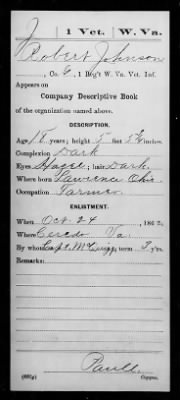 J 1 Vet. W. Va.
Robert Johnson
, Co. E, 1 Reg't W. Va. Vet. Inf.
Appears on
Company Descriptive Book
of the organization named above.
DESCRIPTION.
Age 18 years; height 5 feet 5½ inches.
Complexion Dark
Eyes Hazel; hair Dark
Where born Lawrence Ohio
Occupation Farmer
ENLISTMENT.
When Oct. 24, 1862.
Where Ceredo Va.
By whom Capt. McQuigg; term 3 y'rs.
Remarks:
Paull
Copyist.